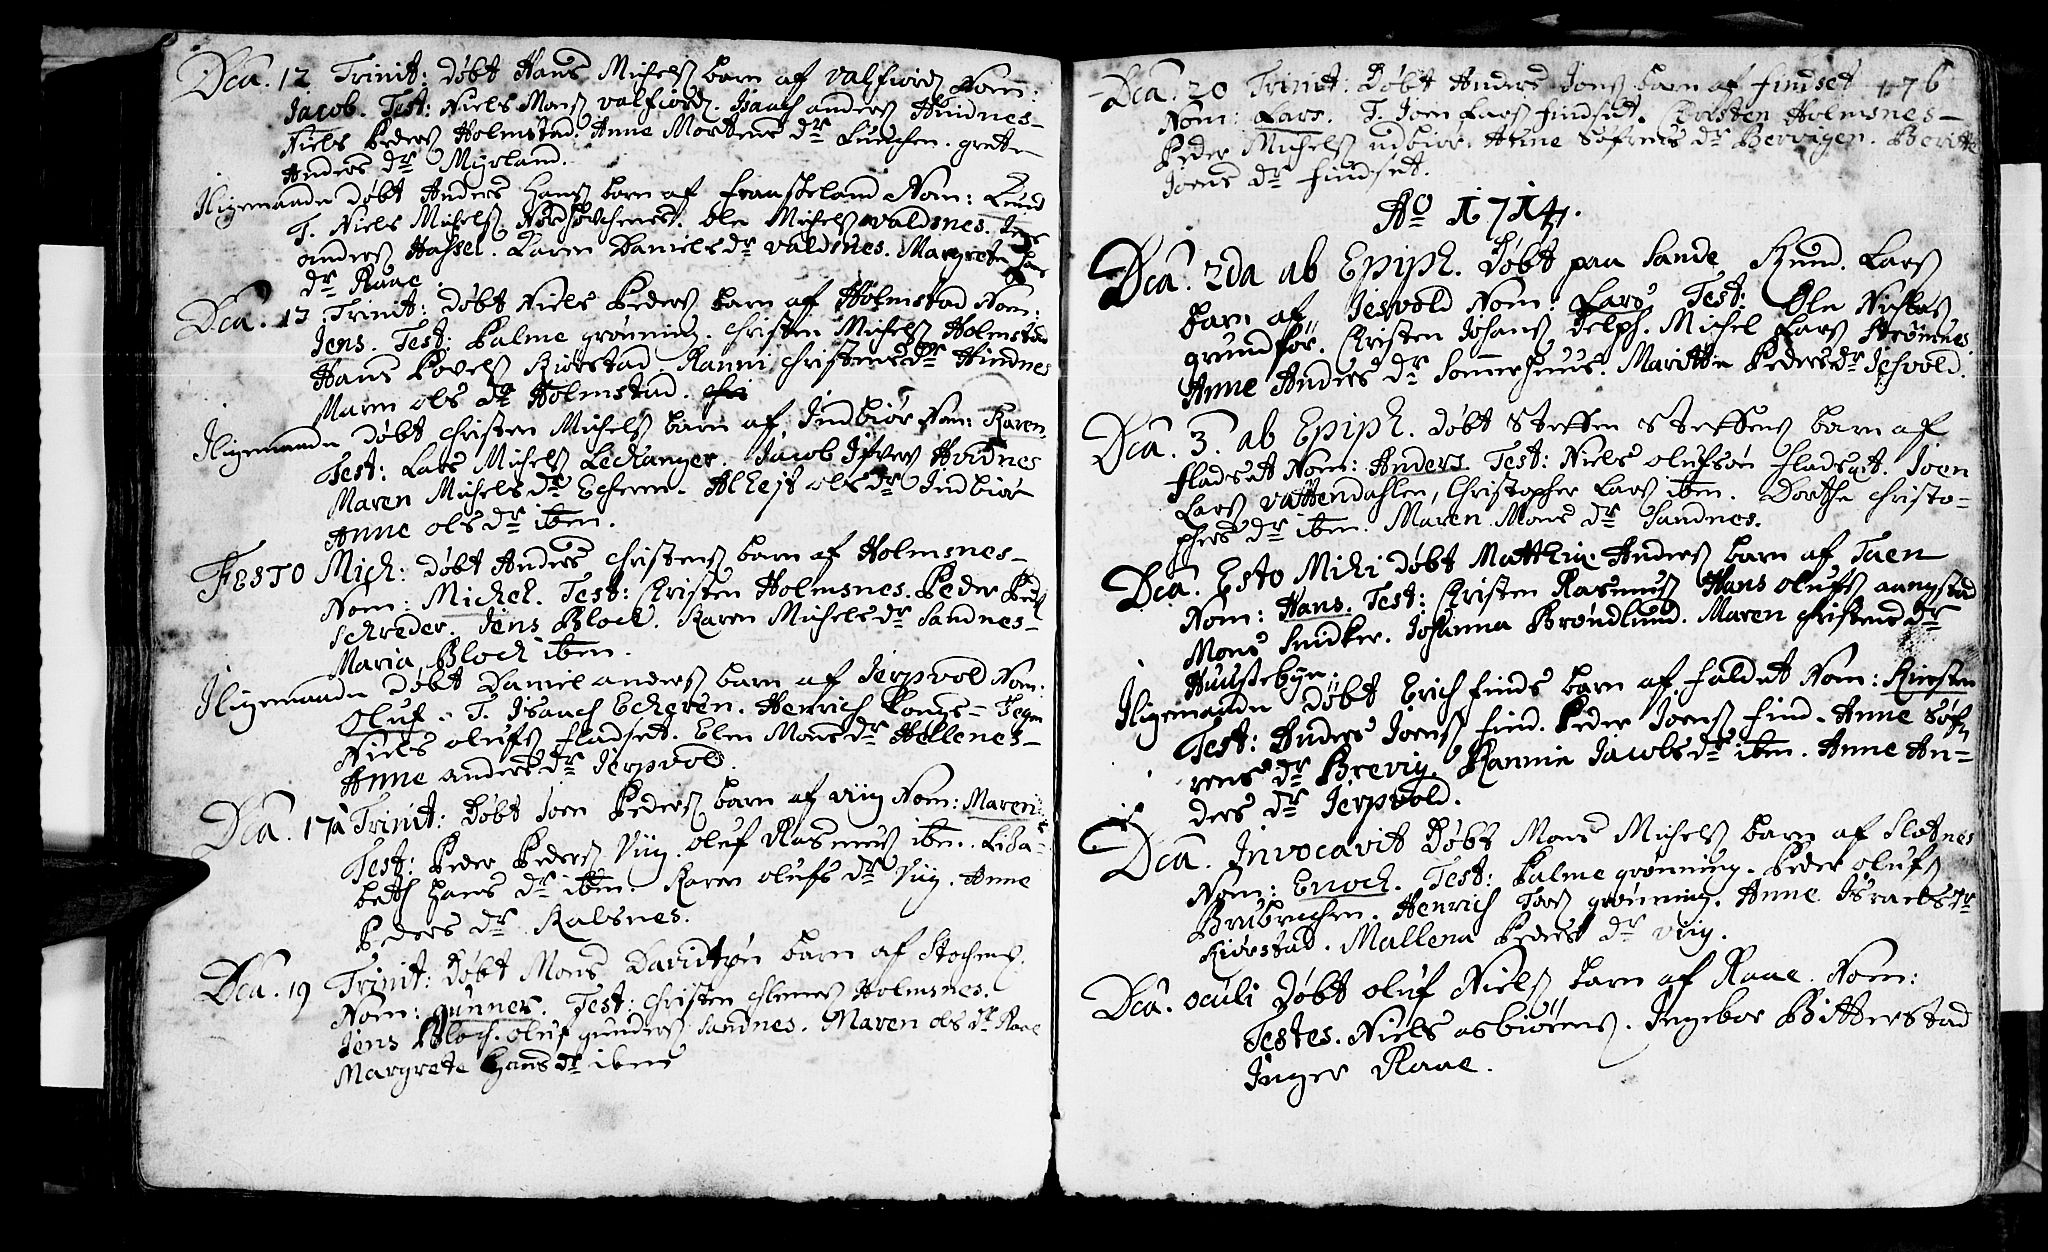 Dca. 12 Trinit: døbt Hans Michels barn af valfiord Nom:
Jacob. Test: Niels Mons valfiord. Isaach anders Hindnes
Niels Peders Holmstad. Anne Mortens dr. grete
Anders dr Myrland.
Iligemaade døbt Anders Hans barn af Frauskeland Nom: Knud
T. Niels Michels. Ole Michels valdsnes.
anders Hassel. Karen Daniels dr valdsnes. Margrete Hans
dr Raae.
Dca. 13. Trinit: døbt Niels Peders barn af Holmstad Nom:
Jens. Test: Palme grønning. Christen Michels Holmstad
Hans Povels Kiørstad. Ranni Christens dr Hindnes
Maren ols dr Holmstad.
Iligemaade døbt Christen Michels barn af Indbiør Nom: Karen.
Test: Lars Michels Leckanger. Jacob Ifvers Hvidnes
Maren Michels dr Eckeren. Alhejt ols dr Indbiør
Anne ols dr ibm.
FESTO Mich: døbt Anders Christens barn af Holmsnes
Nom: Michel. Test: Christen Holmsnes. Peder Peds
schreder. Jens Block. Karen Michels dr Sandnes
Maria Block ibm.
Iligemaade døbt Daniel anders barn af Jerpvold Nom:
Oluf. T. Isaach Eckeren. Henrich
Niels olufs Fladset. Elen Mons dr Hellenes
Anne anders dr Jerpvold.
Dca. 17a Trinit: Døbt Joen Peders barn af viig Nom: Maren
Test: Peder Peders Viig. oluf Rasmus ibm. Lisa-
beth Hans dr ibm. Karen olufs dr Viig. Anne
Peders dr Kalsnes.
Dca. 19 Trinit: Døbt Mons Davidsøn barn af Stochnes.
Nom: Gunner. Test: Christen Holmsnes.
Jens Bloch. oluf gunders Sandnes. Maren ols dr Raae
Margrete Hans dr ibm
Dca. 20 Trinit: Døbt Anders Jons barn af findset 176
Nom: Lars. T. Joen Lars findset. Christen Holmsnes
Peder Michels indbiør. Anne Søfrens dr Bervigen. Beritte
Joens dr findset.
Ao 1714.
Dca. 2da ab Epiph. Døbt paa Sande Knud Lars
barn af Jesvold Nom: Lars Test: Ole Nichlas
grundför. Christen Johans Delph. Michel Lars Strømnes
Anne Anders dr Sommerhuus. Maritte Peders dr Jesvold.
Dca. 3. ab Epiph. døbt Steffen Steffens barn af
fladset Nom: Anders. Test: Niels olufsøn fladset. Joen
Lars vattendahlen, Christopher Lars ibm. Dorthe Christo-
phers dr ibm. Maren Mons dr Sandnes.
Dca. Esto Mihi døbt Matthias Anders barn af Taen
Nom: Hans. Test: Christen Rasmus Hans olufs aangstad
Mons Snidker. Johanna Brøndlund. Maren Christens dr
Huustebye.
Iligemaade Døbt Erich finds barn af faldet Nom: Kirsten
Test: Anders Joens find. Peder Joens find. Anne Søf-
rens dr Brevig. Rannie Jacobs dr ibm. Anne An-
ders dr Jerpvold.
Dca. Invocavit Døbt Mons Michels barn af Slotnes
Nom: Enoch. Test: Palme grønning. Peder olufs
Henrich Tors grønning. Anne Israels dr
Kiørstad. Mallena Peders dr viig.
Dca. oculi Døbt oluf Niels barn af Raae. Nom:
Testes. Niels asbiørns. Ingebor Bitterstad
Inger Raae.